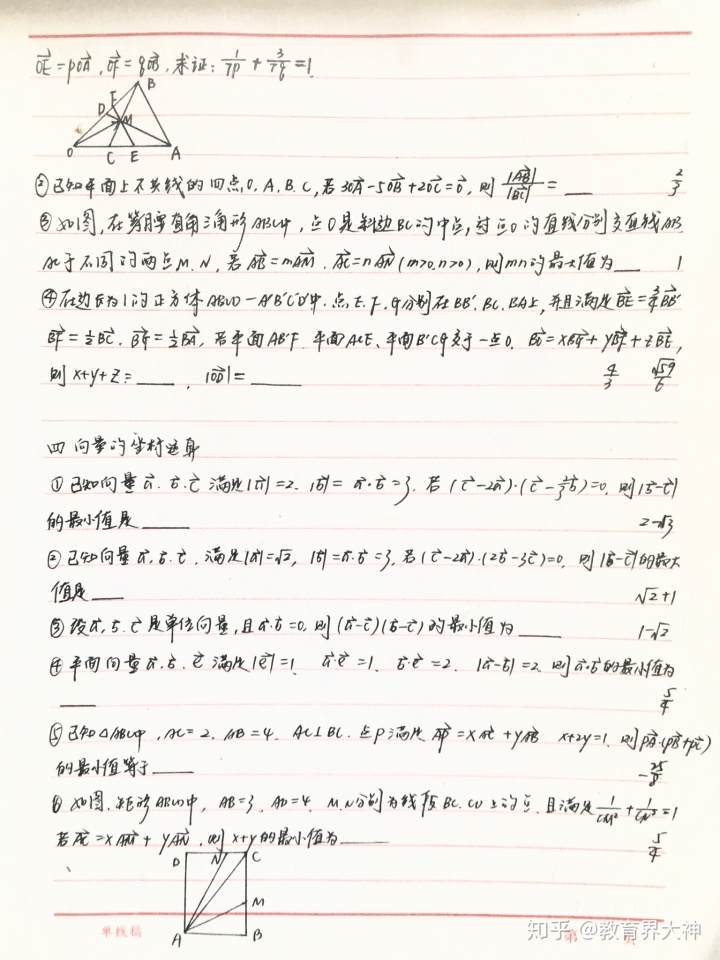 OE=pOA, OF=qOB, 求证: 1/7p + 3/7q = 1.
B
F
D
M
O C E A
②已知平面上不共线的四点O, A, B, C, 若3OA-5OB+2OC=0, 则 |AB|/|BC| = ___ 2/3
③如图, 在等腰直角三角形ABC中, 点O是斜边BC的中点, 过点O的直线分别交直线AB,
AC于不同的两点M, N, 若AB=mAM, AC=nAN (m>0, n>0), 则mn的最大值为___ 1
④在边长为1的正方体ABCD-A'B'C'D'中, 点E, F, G分别在BB', BC, BA上, 并且满足BE=3/4BB'
BF=1/2BC, BG=1/2BA, 若平面AB'F, 平面ACE, 平面B'CG交于一点O, BO=xBG+yBF+zBE,
则x+y+z=____, |OD|=_____ 4/3 √59/6
四 向量的坐标运算
①已知向量a, b, c 满足|a|=2, |b|= a·b=3, 若(c-2a)·(c-2/3b)=0, 则|b-c|
的最小值是____ 2-√3
②已知向量a, b, c, 满足|a|=√2, |b|=a·b=3, 若(c-2a)·(2b-3c)=0, 则|b-c|的最大
值是___ √2+1
③设a, b, c是单位向量, 且a·b=0, 则(a-c)(b-c)的最小值为____ 1-√2
④平面向量a, b, c 满足|c|=1, a·c=1, b·c=2, |a-b|=2, 则a·b的最小值为
___ 5/4
⑤已知△ABC中, AC=2, AB=4, AC⊥BC, 点P满足AP=xAC+yAB x+2y=1, 则PA·(PB+PC)
的最小值等于____ -25/8
⑥如图, 矩形ABCD中, AB=3, AD=4, M, N分别为线段BC, CD上的点, 且满足1/CM²+1/CN²=1
若AC=xAM+yAN, 则x+y的最小值为____ 5/4
D N C
M
A B
单线稿 第 页
知乎 @教育界大神